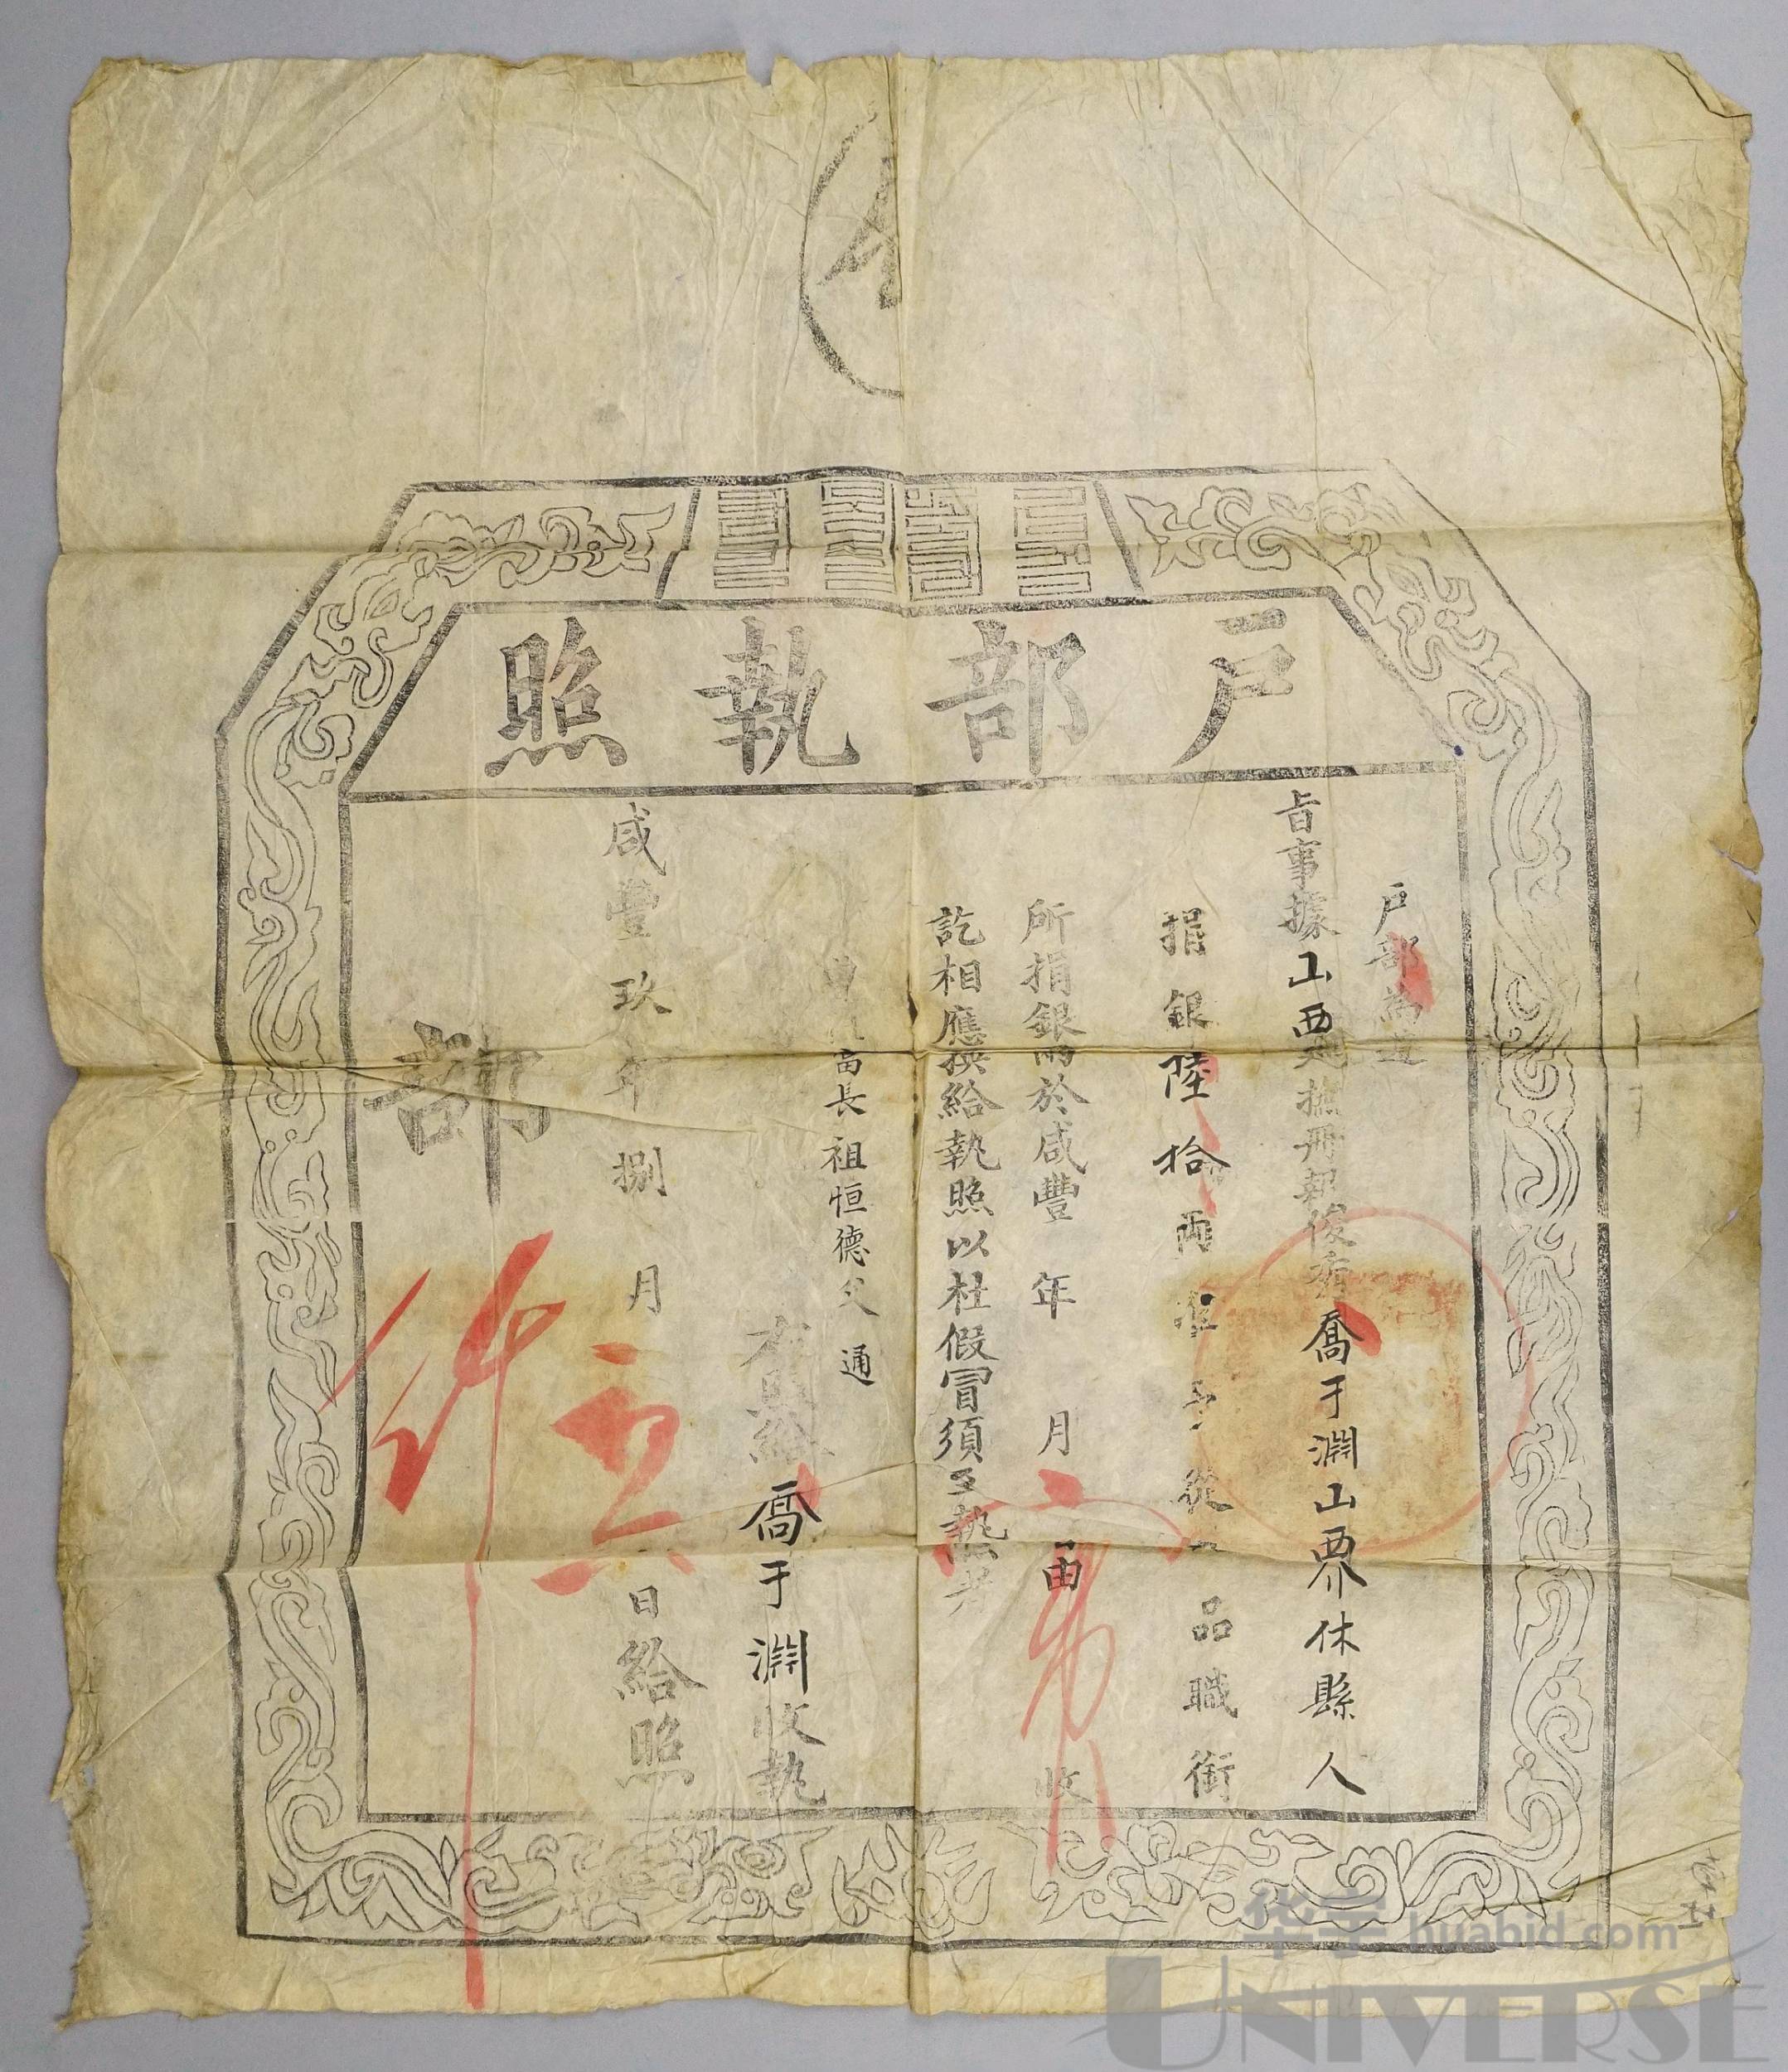 戶部執照
戶部為遵
旨事據山西巡撫冊報俊秀喬于淵山西介休縣人
捐銀陸拾兩准予從 品職銜
所捐銀兩於咸豐 年 月 由 收
訖相應換給執照以杜假冒須至執照者
曾祖富長祖恒德父通
右照給喬于淵收執
咸豐玖年捌月 日給照
部
华宇 huabid.com
UNIVERSE